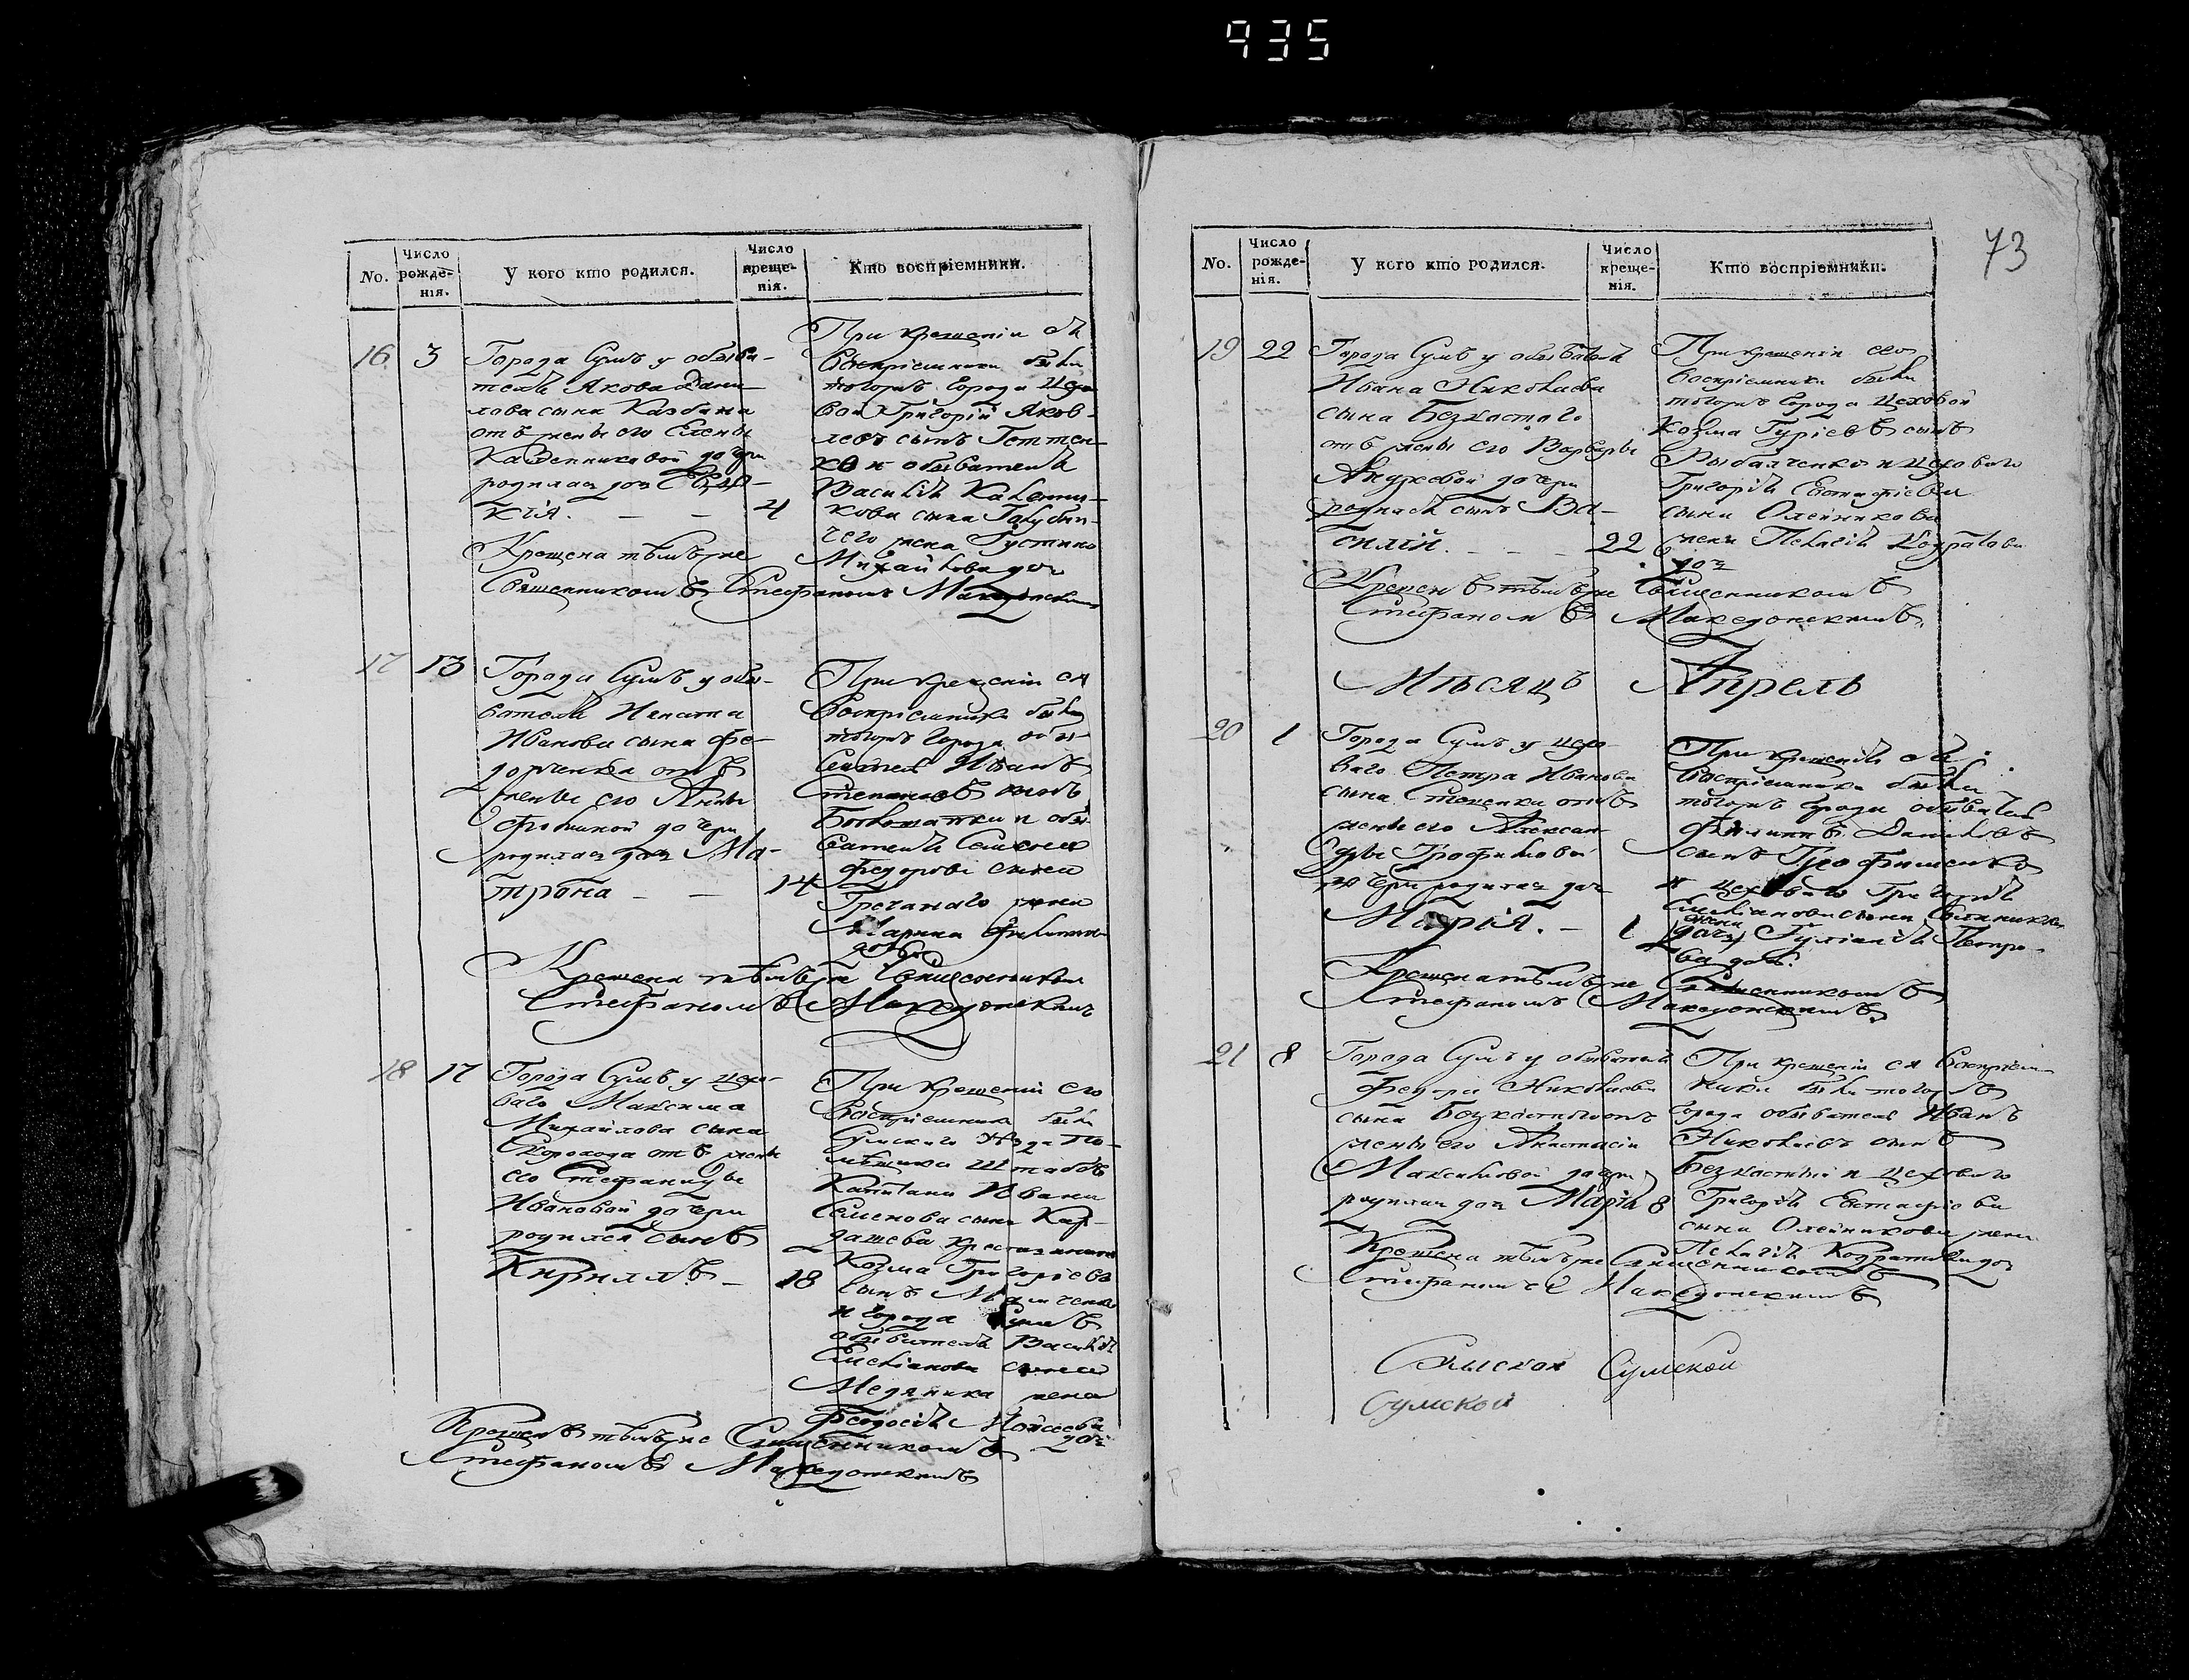 935
No.
Число рожде-нія.
У кого кто родился.
Число креще-нія.
Кто воспріемники.
16
3
Города Сумъ у обыва-
теля Якова Дани-
лова сына Казбана
отъ жены его Елены
Калениковой дочери
родилась дочь Евдо-
кія. — — 4
При крещеніи ея
воспріемники были
тогожъ города цехо
вой Григорій Яков-
левъ сынъ
и обывателя
Василія Калени-
кова сына Голубни-
чего жена Густина
Михайлова дочь
Крещена тѣмъ же
Священникомъ Стефаномъ Македонскимъ
17
13
Города Сумъ у обы-
вателя Игната
Иванова сына Фе-
дорченка отъ
жены его Анны
дочери
родилась дочь Ма-
трона — — 14
При крещеніи ея
воспріемники были
тогожъ города обы-
ватель Иванъ
Степановъ сынъ
и обы-
вателя Семена
Федорова сына
Гречанаго жена
Марина
дочь
Крещена тѣмъ же Священникомъ
Стефаномъ Македонскимъ
18
17
Города Сумъ у цехо-
ваго Максима
Михайлова сына
Скорохода отъ жены
его Стефаниды
Ивановой дочери
родился сынъ
Кириллъ — 18
При крещеніи его
воспріемники были
Сумскаго уѣзда по-
мѣщика Штабсъ
Капитана Ивана
Семенова сына Кар-
дашева крестьянинъ
Козма Григорьевъ
сынъ
и города Сумъ
обывателя Василія
Емельянова сына
Медяника жена
Феодосія Мойсеева
дочь
Крещенъ тѣмъ же Священникомъ
Стефаномъ Македонскимъ
73
No.
Число рожде-нія.
У кого кто родился.
Число креще-нія.
Кто воспріемники.
19
22
Города Сумъ у обывателя
Ивана Николаева
сына Безкостаго
отъ жены его Варвары
Андреевой дочери
родился сынъ Ва-
силій. — — — 22
При крещеніи его
воспріемники были
тогожъ города цеховой
Козма Гуріевъ сынъ
Рыбалченко и цеховаго
Григорія Евстафіева
сына Олейникова
жена Пелагія Кодратова
дочь
Крещенъ тѣмъ же Священникомъ
Стефаномъ Македонскимъ.
Мѣсяцъ Апрель
20
1
Города Сумъ у цехо-
ваго Петра Иванова
сына Стеценка отъ
жены его Алексан-
дры Трофимовой
дочери родилась дочь
Марія. — 1
При крещеніи ея
воспріемники были
тогожъ города обыватель
Филиппъ Даниловъ
сынъ Трофименко
и цеховаго Григорія
Емельянова сына
жена Гуліанія Петро-
ва дочь.
Крещена тѣмъ же Священникомъ
Стефаномъ Македонскимъ.
21
8
Города Сумъ у обывателя
Федора Николаева
сына Безкостаго отъ
жены его Анастасіи
Максимовой дочери
родилась дочь Марія 8
При крещеніи ея воспріем-
ники были тогожъ
города обыватель Иванъ
Николаевъ сынъ
Безкостый и цеховаго
Григорія Евстафіева
сына Олейникова жена
Пелагія Кодратова дочь
Крещена тѣмъ же Священникомъ
Стефаномъ Македонскимъ
Сумской
Сумской